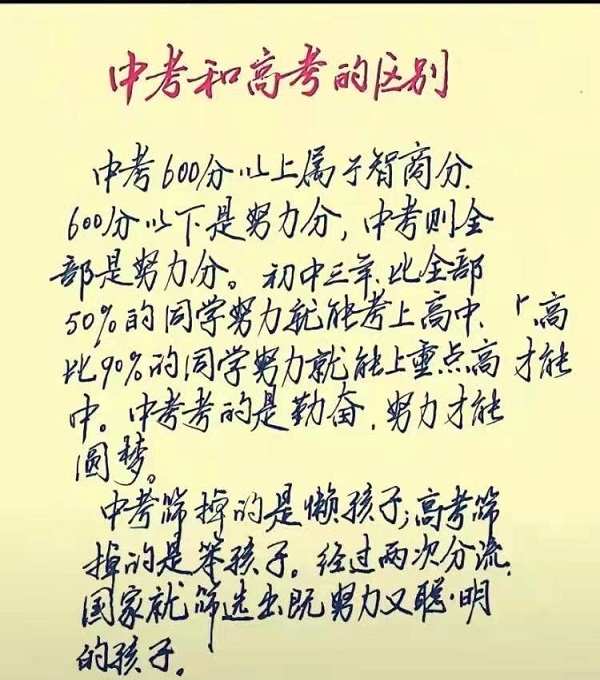 中考和高考的区别
中考600分以上属于智商分.
600分以下是努力分,中考则全
部是努力分。初中三年,比全部
50%的同学努力就能考上高中、高
比90%的同学努力就能上重点高 才能
中。中考考的是勤奋,努力才能
圆梦。
中考筛掉的是懒孩子;高考筛
掉的是笨孩子。经过两次分流,
国家就筛选出既努力又聪明
的孩子。